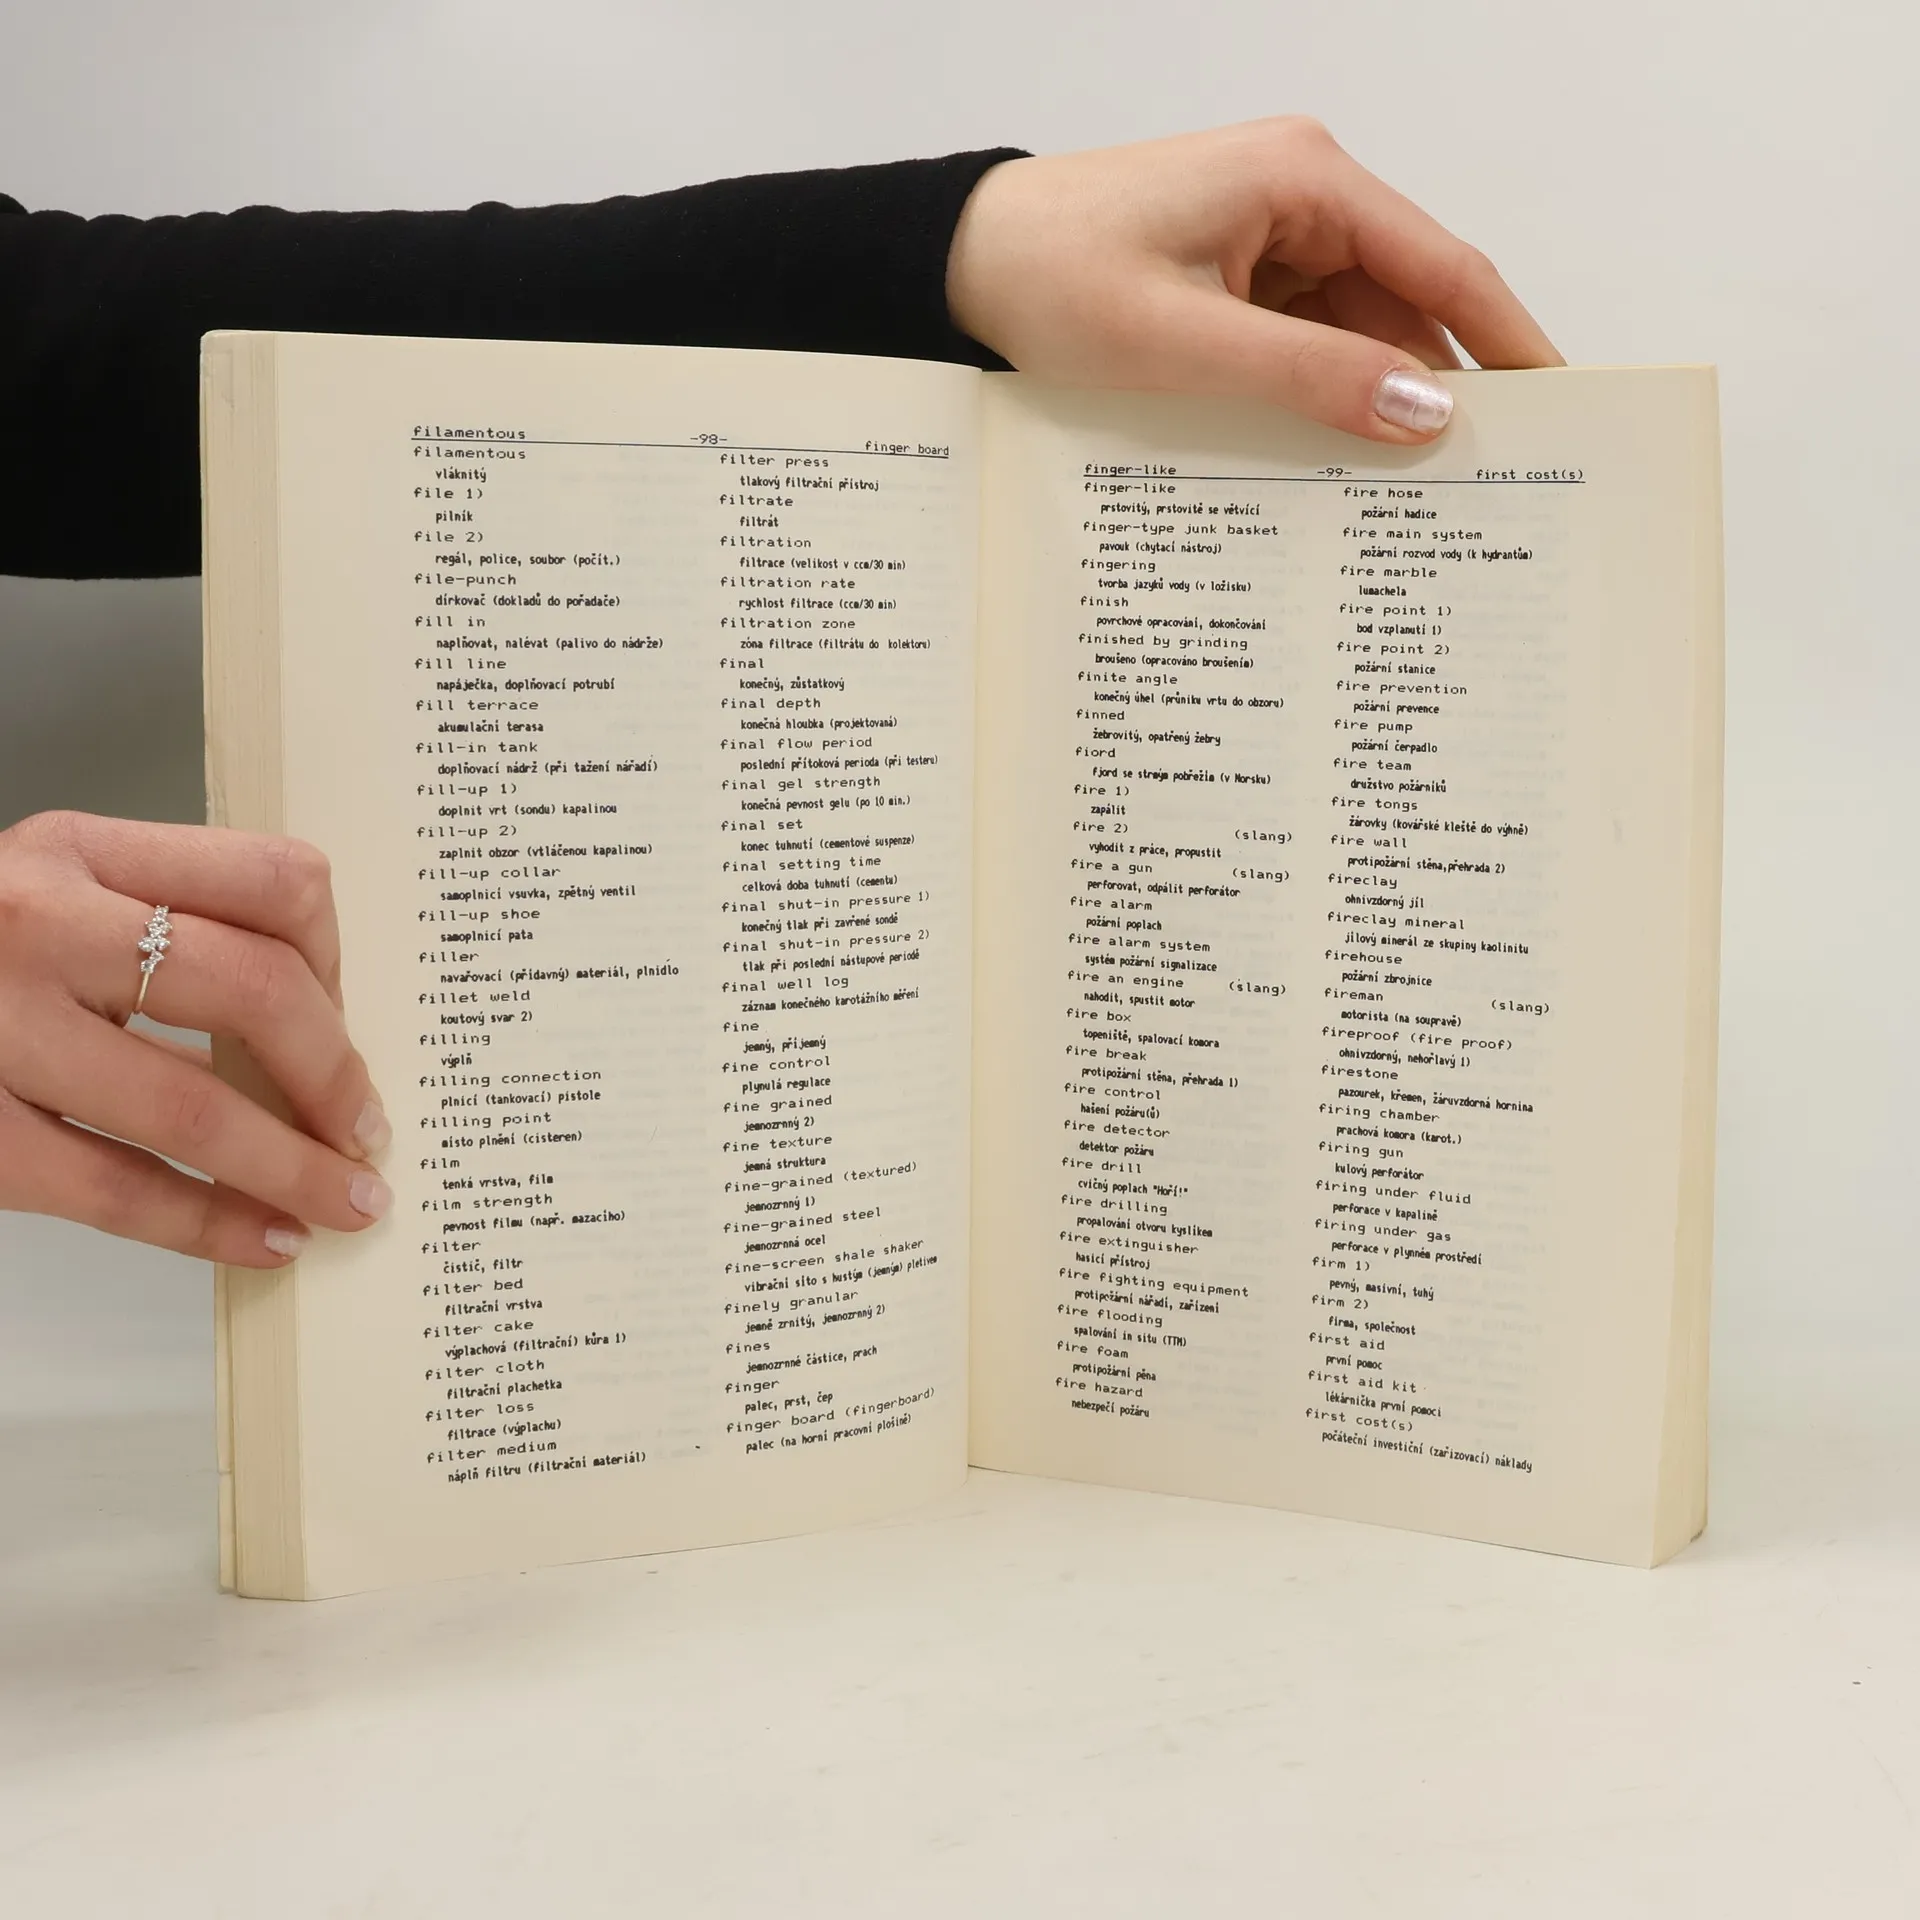 filamentous -98- finger board
filamentous
vláknitý
file 1)
pilník
file 2)
regál, police, soubor (počít.)
file-punch
dírkovač (dokladů do pořadače)
fill in
naplňovat, nalévat (palivo do nádrže)
fill line
napáječka, doplňovací potrubí
fill terrace
akumulační terasa
fill-in tank
doplňovací nádrž (při tažení nářadí)
fill-up 1)
doplnit vrt (sondu) kapalinou
fill-up 2)
zaplnit obzor (vtláčenou kapalinou)
fill-up collar
samoplnicí vsuvka, zpětný ventil
fill-up shoe
samoplnicí pata
filler
navařovací (přídavný) materiál, plnidlo
fillet weld
koutový svar 2)
filling
výplň
filling connection
plnicí (tankovací) pistole
filling point
místo plnění (cisteren)
film
tenká vrstva, film
film strength
pevnost filmu (např. mazacího)
filter
čistič, filtr
filter bed
filtrační vrstva
filter cake
výplachová (filtrační) kůra 1)
filter cloth
filtrační plachetka
filter loss
filtrace (výplachu)
filter medium
náplň filtru (filtrační materiál)
filter press
tlakový filtrační přístroj
filtrate
filtrát
filtration
filtrace (velikost v ccm/30 min)
filtration rate
rychlost filtrace (ccm/30 min)
filtration zone
zóna filtrace (filtrátu do kolektoru)
final
konečný, zůstatkový
final depth
konečná hloubka (projektovaná)
final flow period
poslední přítoková perioda (při testeru)
final gel strength
konečná pevnost gelu (po 10 min.)
final set
konec tuhnutí (cementové suspenze)
final setting time
celková doba tuhnutí (cementu)
final shut-in pressure 1)
konečný tlak při zavřené sondě
final shut-in pressure 2)
tlak při poslední nástupové periodě
final well log
záznam konečného karotážního měření
fine
jemný, příjemný
fine control
plynulá regulace
fine grained
jemnozrnný 2)
fine texture
jemná struktura
fine-grained (textured)
jemnozrnný 1)
fine-grained steel
jemnozrnná ocel
fine-screen shale shaker
vibrační síto s hustým (jemným) pletivem
finely granular
jemně zrnitý, jemnozrnný 2)
fines
jemnozrnné částice, prach
finger
palec, prst, čep
finger board (fingerboard)
palec (na horní pracovní plošině)
finger-like -99- first cost(s)
finger-like
prstovitý, prstovitě se větvící
finger-type junk basket
pavouk (chytací nástroj)
fingering
tvorba jazyků vody (v ložisku)
finish
povrchové opracování, dokončování
finished by grinding
broušeno (opracováno broušením)
finite angle
konečný úhel (průniku vrtu do obzoru)
finned
žebrovitý, opatřený žebry
fiord
fjord se strmým pobřežím (v Norsku)
fire 1)
zapálit
fire 2) (slang)
vyhodit z práce, propustit
fire a gun (slang)
perforovat, odpálit perforátor
fire alarm
požární poplach
fire alarm system
systém požární signalizace
fire an engine (slang)
nahodit, spustit motor
fire box
topeniště, spalovací komora
fire break
protipožární stěna, přehrada 1)
fire control
hašení požáru(ů)
fire detector
detektor požáru
fire drill
cvičný poplach "Hoří!"
fire drilling
propalování otvoru kyslíkem
fire extinguisher
hasicí přístroj
fire fighting equipment
protipožární nářadí, zařízení
fire flooding
spalování in situ (TTM)
fire foam
protipožární pěna
fire hazard
nebezpečí požáru
fire hose
požární hadice
fire main system
požární rozvod vody (k hydrantům)
fire marble
lumachela
fire point 1)
bod vzplanutí 1)
fire point 2)
požární stanice
fire prevention
požární prevence
fire pump
požární čerpadlo
fire team
družstvo požárníků
fire tongs
žárovky (kovářské kleště do výhně)
fire wall
protipožární stěna,přehrada 2)
fireclay
ohnivzdorný jíl
fireclay mineral
jílový minerál ze skupiny kaolinitu
firehouse
požární zbrojnice
fireman (slang)
motorista (na soupravě)
fireproof (fire proof)
ohnivzdorný, nehořlavý 1)
firestone
pazourek, křemen, žáruvzdorná hornina
firing chamber
prachová komora (karot.)
firing gun
kulový perforátor
firing under fluid
perforace v kapalině
firing under gas
perforace v plynném prostředí
firm 1)
pevný, masivní, tuhý
firm 2)
firma, společnost
first aid
první pomoc
first aid kit
lékárnička první pomoci
first cost(s)
počáteční investiční (zařizovací) náklady